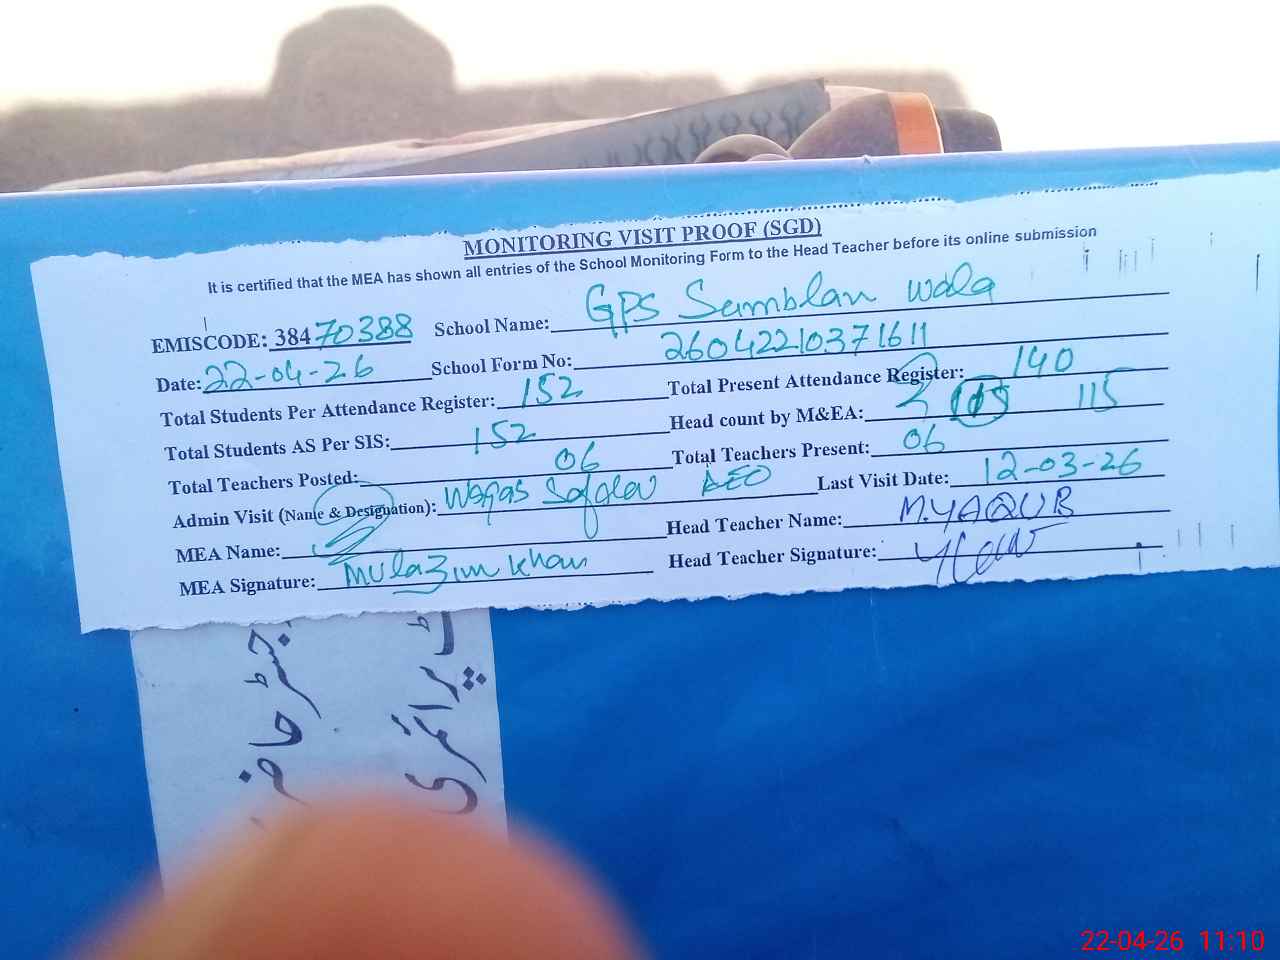 MONITORING VISIT PROOF (SGD)
It is certified that the MEA has shown all entries of the School Monitoring Form to the Head Teacher before its online submission
EMISCODE: 38470388 School Name: GPS Samblan wala
Date: 22-04-26 School Form No: 26042210371611
Total Students Per Attendance Register: 152 Total Present Attendance Register: 140
Total Students AS Per SIS: 152 Head count by M&EA: 115
Total Teachers Posted: 06 Total Teachers Present: 06
Admin Visit (Name & Designation): Waqas AEO Last Visit Date: 12-03-26
MEA Name: Head Teacher Name: M.YAQUB
MEA Signature: Mulazim Khan Head Teacher Signature:
رجسٹر حاضر
پرائمری
22-04-26 11:10